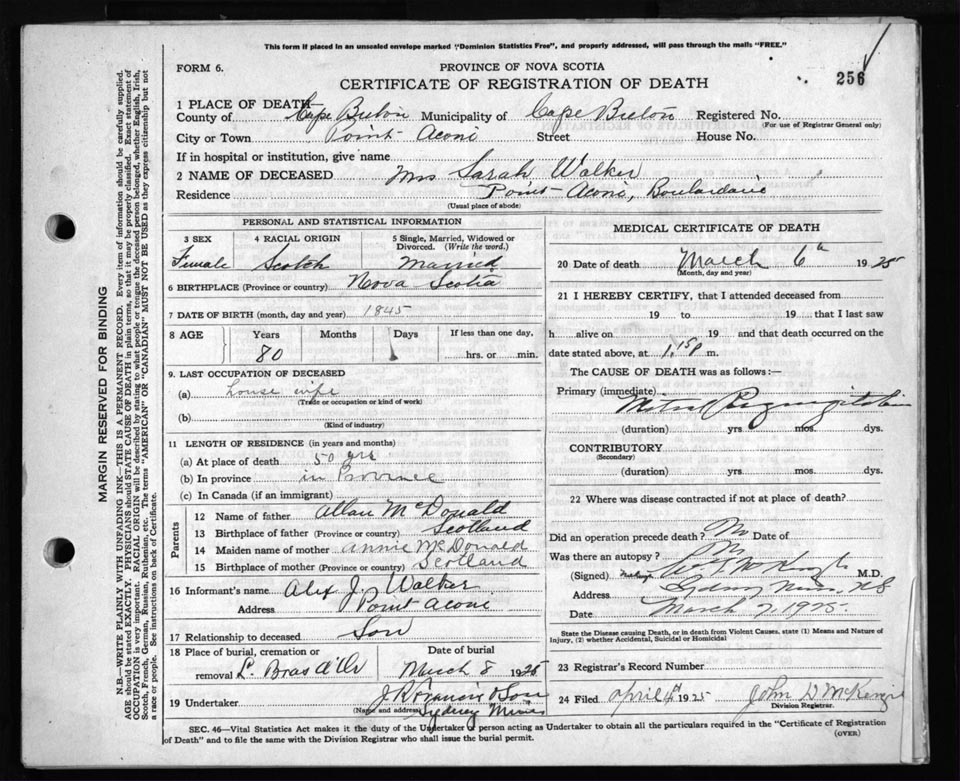 This form if placed in an unsealed envelope marked "Dominion Statistics Free", and properly addressed, will pass through the mails "FREE."
FORM 6.
PROVINCE OF NOVA SCOTIA
CERTIFICATE OF REGISTRATION OF DEATH
256
1 PLACE OF DEATH—
County of Cape Breton Municipality of Cape Breton Registered No.
(For use of Registrar General only)
City or Town Point Aconi Street House No.
If in hospital or institution, give name
2 NAME OF DECEASED Mrs Sarah Walker
Residence Point Aconi, Boulardarie
(Usual place of abode)
PERSONAL AND STATISTICAL INFORMATION
3 SEX Female
4 RACIAL ORIGIN Scotch
5 Single, Married, Widowed or Divorced. (Write the word.) Married
6 BIRTHPLACE (Province or country) Nova Scotia
7 DATE OF BIRTH (month, day and year) 1845
8 AGE Years Months Days If less than one day,
80 hrs. or min.
9. LAST OCCUPATION OF DECEASED
(a) house wife
(Trade or occupation or kind of work)
(b)
(Kind of industry)
11 LENGTH OF RESIDENCE (in years and months)
(a) At place of death 50 yrs
(b) In province in Province
(c) In Canada (if an immigrant)
Parents
12 Name of father Allan McDonald
13 Birthplace of father (Province or country) Scotland
14 Maiden name of mother Annie McDonald
15 Birthplace of mother (Province or country) Scotland
16 Informant's name Alex J. Walker
Address Point Aconi
17 Relationship to deceased Son
18 Place of burial, cremation or removal L. Bras d'Or
Date of burial March 8 1925
19 Undertaker J R Francis & Son
(Name and address) Sydney Mines
MEDICAL CERTIFICATE OF DEATH
20 Date of death March 6th 1925
(Month, day and year)
21 I HEREBY CERTIFY, that I attended deceased from
19 to 19 that I last saw
h alive on 19 and that death occurred on the
date stated above, at 1.15 P m.
The CAUSE OF DEATH was as follows:—
Primary (immediate) Mitral Regurgitation
(duration) yrs. mos. dys.
CONTRIBUTORY
(Secondary)
(duration) yrs. mos. dys.
22 Where was disease contracted if not at place of death?
Did an operation precede death? No Date of
Was there an autopsy? No
(Signed) M.D.
Address Sydney Mines, N.S
Date March 7, 1925.
State the Disease causing Death, or in death from Violent Causes, state (1) Means and Nature of
Injury, (2) whether Accidental, Suicidal or Homicidal
23 Registrar's Record Number
24 Filed April 1925 John D McKenzie
Division Registrar.
SEC. 46—Vital Statistics Act makes it the duty of the Undertaker or person acting as Undertaker to obtain all the particulars required in the "Certificate of Registration
of Death" and to file the same with the Division Registrar who shall issue the burial permit.
(OVER)
MARGIN RESERVED FOR BINDING
N.B.—WRITE PLAINLY WITH UNFADING INK—THIS IS A PERMANENT RECORD. Every item of information should be carefully supplied.
AGE should be stated EXACTLY. PHYSICIANS should STATE CAUSE OF DEATH in plain terms, so that it may be properly classified. Exact statement of
OCCUPATION is very important. RACIAL ORIGIN will be described by stating to what people or tongue the deceased person belonged, whether English, Irish,
Scotch, French, German, Russian, Ruthenian, etc. The terms "AMERICAN" OR "CANADIAN" MUST NOT BE USED as they express citizenship but not
a race or people. See instructions on back of Certificate.